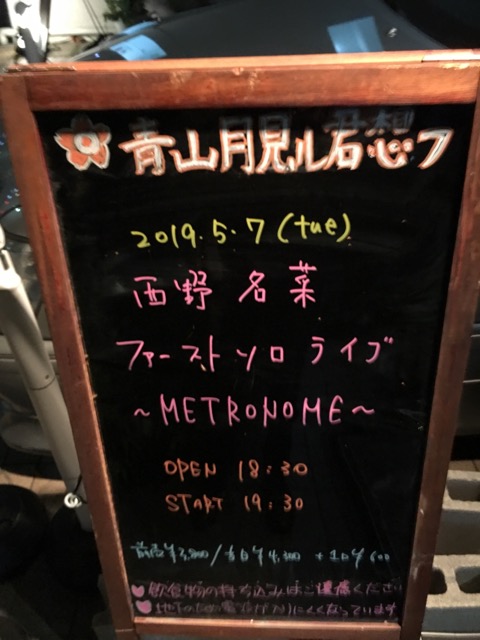 青山月見ル君想フ
2019.5.7 (tue)
西野名菜
ファーストソロライブ
~METRONOME~
OPEN 18:30
START 19:30
前売¥3,800/当日¥4,300 +1D¥600
飲食物の持ち込みはご遠慮ください
地下のため電波が入りにくくなっています